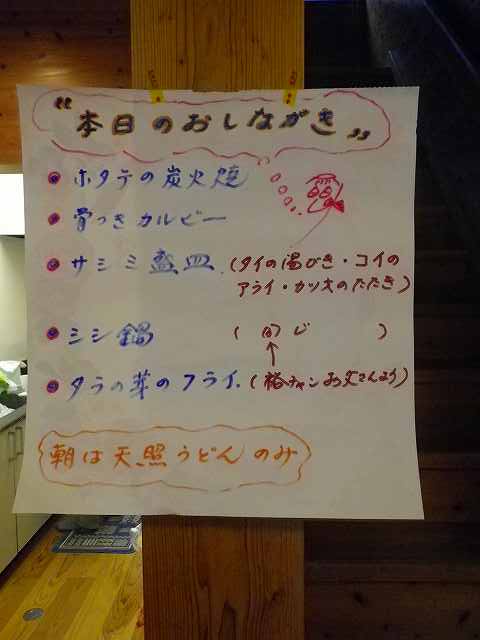 "本日のおしながき"
ホタテの炭火焼
骨つきカルビー
サシミ盛皿 (タイの湯びき・コイの
アライ・カツオのたたき)
シシ鍋 ( 同じ )
タラの芽のフライ (裕チャンお父さんより)
朝は天照うどんのみ